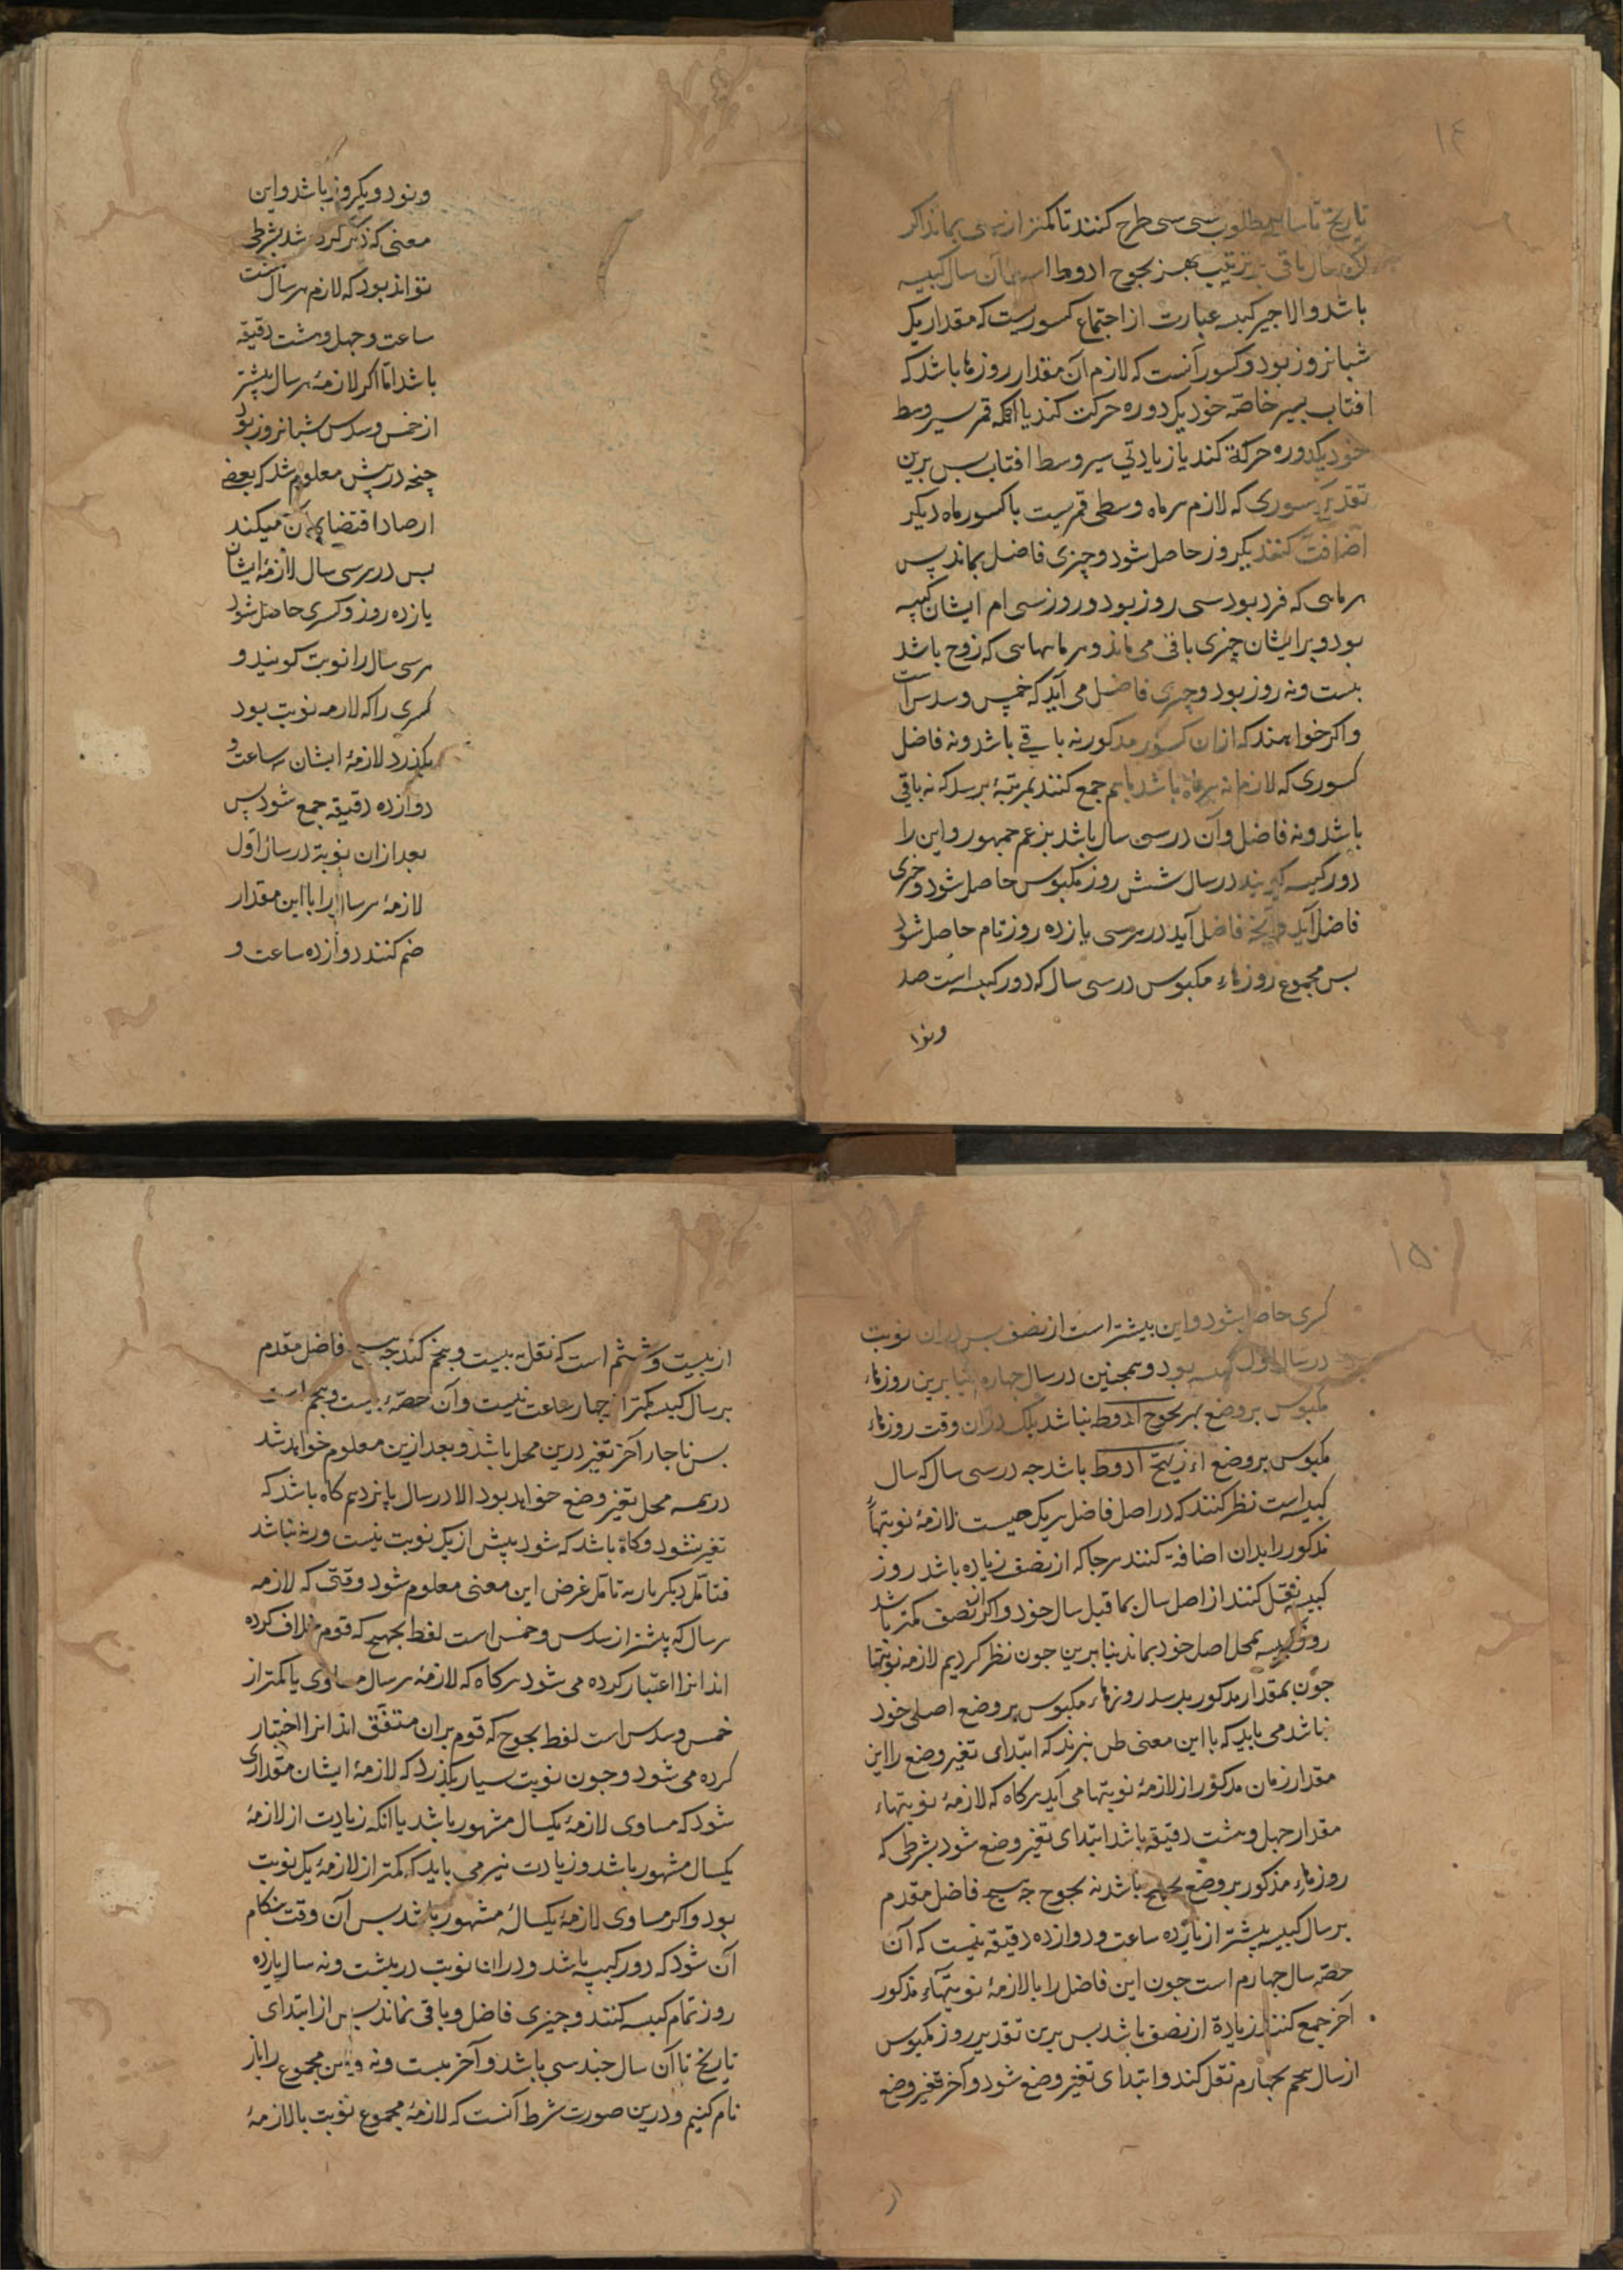 ۱۴
تاریخ تا سال مطلوب سی سی طرح کنند تا کمتر از سی بماند اگر
باقی بترتیب بهزیجوح ادوط است آن سال کبیسه
باشد والا جیر کبیسه عبارت از اجتماع کسوریست که مقدار یک
شبانروز بود و کسور آنست که لازم آن مقدار روزها باشد که
افتاب بسیر خاصه خود یک دوره حرکت کند یا آنکه قمر بسیر وسط
خود یکدوره حرکة کند یا زیادتی سیر وسط افتاب بس برین
تقدیر کسوری که لازم هر ماه وسطی قمریست با کسور ماه دیگر
اضافت کنند یکروز حاصل شود و چیزی فاضل بماند پس
هر ماهی که فرد بود سی روز بود و روز سی ام ایشان کبیسه
بود و برایشان چیزی باقی می ماند و هر ماههایی که زوج باشد
بیست و نه روز بود و چیزی فاضل می آید که خمس و سدس است
و اگر خواهند که ازان کسور مذکور نه باقی باشد و نه فاضل
کسوری که لازم هر ماه باشد باهم جمع کنند بمرتبهٔ برسد که نه باقی
باشد و نه فاضل و آن در سی سال باشد بزعم جمهور و این را
دور کبیسه گویند در سال شش روز مکبوس حاصل شود و چیزی
فاضل آید و آنچه فاضل آید در هر سی یازده روز تام حاصل شود
بس مجموع روزهاء مکبوس در سی سال که دور کبیسه است صد
ونود
ونود و یکروز باشد و این
معنی که ذکر کرده شد بشرطی
تواند بود که لازم هر سال هشت
ساعت و چهل و هشت دقیقه
باشد اما اگر لازمهٔ هر سال بیشتر
از خمس و سدس شبانروز بود
چنچه در پیش معلوم شد که بعضی
ارصاد اقتضای آن میکند
بس در هر سی سال لازمهٔ ایشان
یازده روز و کسری حاصل شود
هر سی سال را نوبت گویند و
کسری را که لازمه نوبت بود
بگذرد لازمهٔ ایشان سه ساعت و
دوازده دقیقه جمع شود پس
بعد ازان نوبة در سال اول
لازمهٔ هر سال را با این مقدار
ضم کنند دوازده ساعت و
۱۵
کسری حاصل شود و این بیشتر است از نصف بس دران نوبت
در سال اول کبیسه بود و همچنین در سال چهارم بنابرین روزهاء
مکبوس بر وضع بهزیجوح ادوط نباشد بلک دران وقت روزهاء
مکبوس بر وضع ادوط باشد چه در سی سال که سال
کبیسه است نظر کنند که در اصل فاضل هر یک چیست لازمهٔ نوبتهاء
مذکور را بدان اضافة کنند هر جا که از نصف زیاده باشد روز
کبیسه نقل کنند از اصل سال بما قبل سال خود و اگر از نصف کمتر باشد
روز کبیسه بمحل اصل خود بماند بنابرین چون نظر کردیم لازمه نوبتها
چون بمقدار مذکور برسد روزهاء مکبوس بر وضع اصلی خود
نباشد می باید که با این معنی ظن نبرند که ابتدای تغیر وضع را این
مقدار زمان مذکور از لازمهٔ نوبتها می آید هر گاه که لازمهٔ نوبتهاء
مقدار چهل و هشت دقیقه باشد ابتدای تغیر وضع شود بشرطی که
روزهاء مذکور بر وضع بجهیح باشد نه بجوح چه هیچ فاضل مقدم
بر سال کبیسه بیشتر از یازده ساعت و دوازده دقیقه نیست که آن
حصّه سال چهارم است چون این فاضل را با لازمهٔ نوبتهاء مذکور
آخر جمع کنند زیادة از نصف باشد بس برین تقدیر روز مکبوس
از سال پنجم بچهارم نقل کند و ابتدای تغیر وضع شود و آخر تغیر وضع
از
از بیست و ششم است که نقل به بیست و پنجم کند چه هیچ فاضل مقدم
بر سال کبیسه کمتر از چهار ساعت نیست و آن حصّهٔ بیست و پنجم است
بس ناچار آخر تغیر درین محل باشد و بعد ازین معلوم خواهد شد
در همه محل تغیر وضع خواهد بود الا در سال پانزدهم گاه باشد که
تغیر نشود و گاه باشد که شود بیش از یک نوبت نیست ورنه نباشد
فتامل دیگر بار به تامل غرض این معنی معلوم شود وقتی که لازمه
هر سال که بیشتر از سدس و خمس است لفظ بجهیح که قوم خلاف کرده
اند انرا اعتبار کرده می شود هر گاه که لازمهٔ هر سال مساوی یا کمتر از
خمس و سدس است لفظ بجوح که قوم بران متفق اند انرا اختیار
کرده می شود و چون نوبت بسیار بگذرد که لازمهٔ ایشان مقداری
شود که مساوی لازمهٔ یکسال مشهور باشد یا انکه زیادت از لازمهٔ
یکسال مشهور باشد و زیادت نیز می باید که کمتر از لازمهٔ یک نوبت
بود و اگر مساوی لازمهٔ یکسالهٔ مشهور باشد بس آن وقت هنگام
آن شود که دور کبیسه باشد و دران نوبت در بیست و نه سال یازده
روز تمام کبیسه کنند و چیزی فاضل و باقی نماند بس از ابتدای
تاریخ تا آن سال چند سی باشد و آخر بیست و نه و این مجموع را باز
نام کنیم و درین صورت شرط آنست که لازمهٔ مجموع نوبت با لازمهٔ